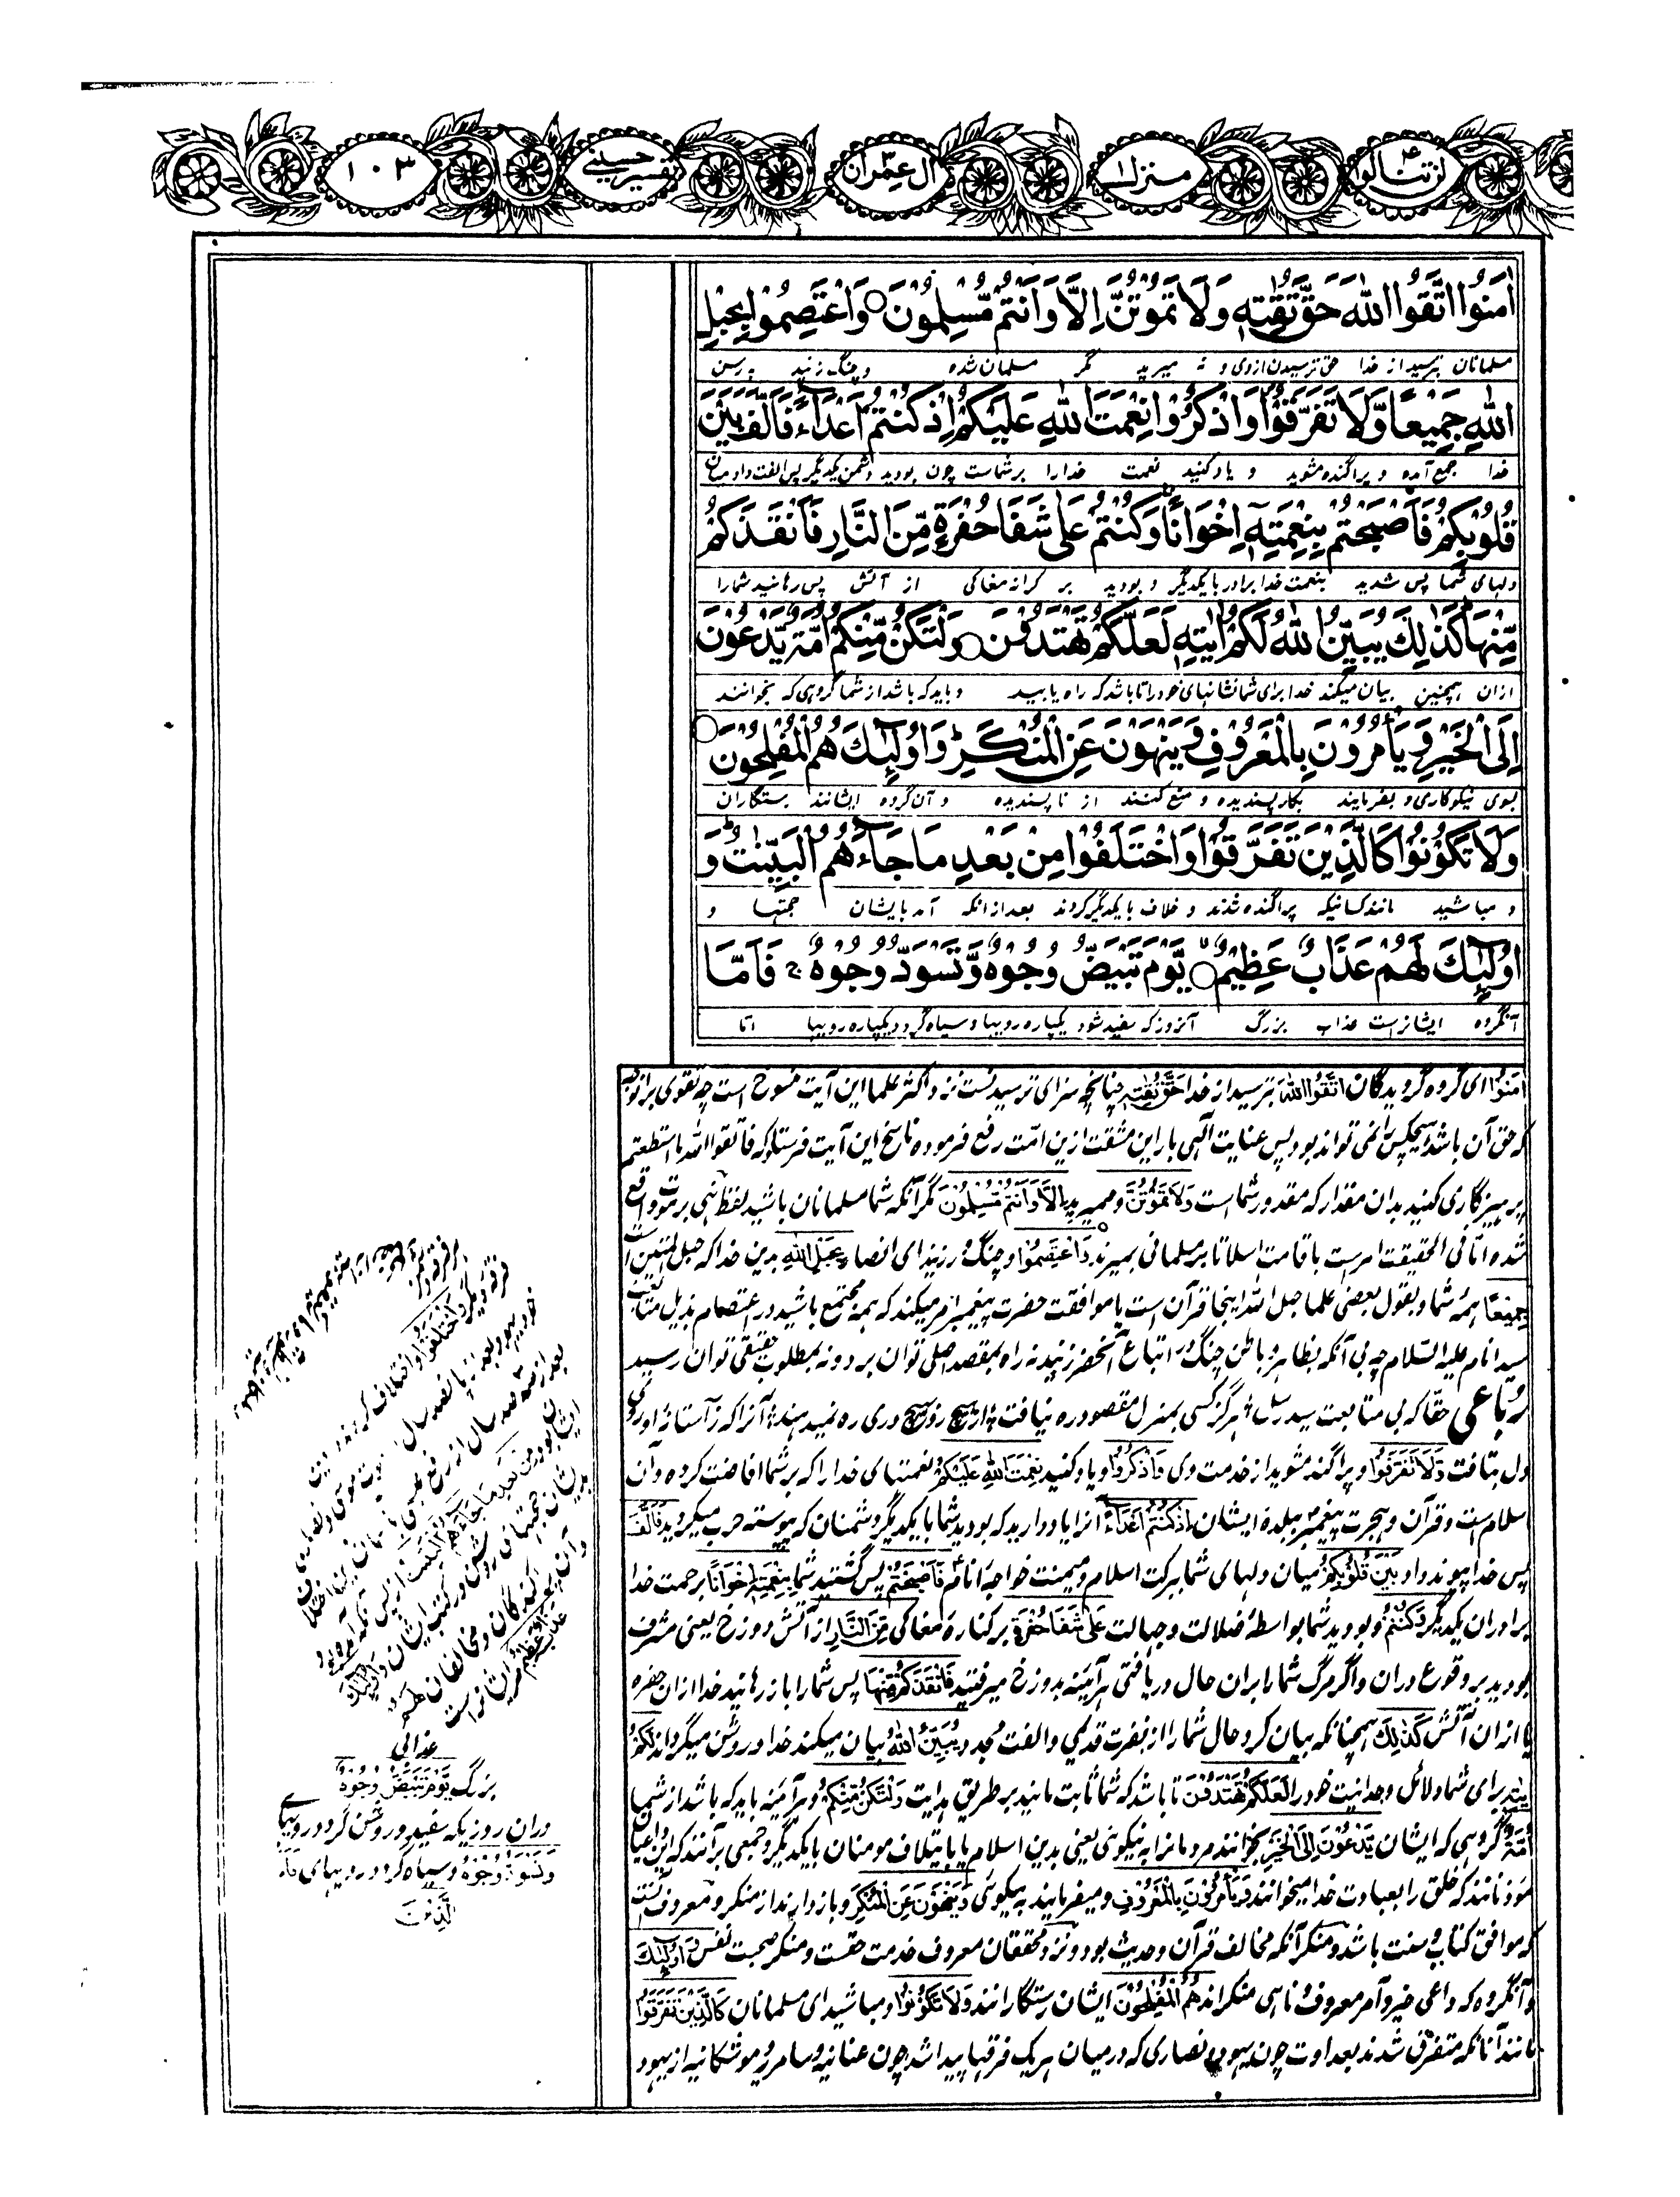 لن تنالوا ۴
منزل ۱
اٰل عمران ۳
تفسیر حسینی
۱۰۳
اٰمَنُوا اتَّقُوا اللّٰهَ حَقَّ تُقٰتِهٖ وَلَا تَمُوْتُنَّ اِلَّا وَاَنْتُمْ مُّسْلِمُوْنَ ○ وَاعْتَصِمُوْا بِحَبْلِ
مسلمانان بترسید از خدا حق ترسیدن ازوی و نه میرید مگر مسلمان شده و چنگ زنید به رسن
اللّٰهِ جَمِيْعًا وَّلَا تَفَرَّقُوْا وَاذْكُرُوْا نِعْمَتَ اللّٰهِ عَلَيْكُمْ اِذْ كُنْتُمْ اَعْدَآءً فَاَلَّفَ بَيْنَ
خدا جمع آمده و پراگنده مشوید و یاد کنید نعمت خدا را بر شماست چون بودید دشمن یکدیگر پس الفت داد میان
قُلُوْبِكُمْ فَاَصْبَحْتُمْ بِنِعْمَتِهٖٓ اِخْوَانًا وَكُنْتُمْ عَلٰى شَفَا حُفْرَةٍ مِّنَ النَّارِ فَاَنْقَذَكُمْ
دلهای شما پس شدید بنعمت خدا برادر با یکدیگر و بودید بر کرانه مغاکی از آتش پس رهانید شما را
مِّنْهَا كَذٰلِكَ يُبَيِّنُ اللّٰهُ لَكُمْ اٰيٰتِهٖ لَعَلَّكُمْ تَهْتَدُوْنَ ○ وَلْتَكُنْ مِّنْكُمْ اُمَّةٌ يَّدْعُوْنَ
ازان همچنین بیان میکند خدا برای شما نشانهای خود را تا باشد که راه یابید و باید که باشد از شما گروهی که بخوانند
اِلَى الْخَيْرِ وَيَاْمُرُوْنَ بِالْمَعْرُوْفِ وَيَنْهَوْنَ عَنِ الْمُنْكَرِ وَاُولٰٓئِكَ هُمُ الْمُفْلِحُوْنَ ○
بسوی نیکوکاری و بفرمایند بکار پسندیده و منع کنند از ناپسندیده و آن گروه ایشانند رستگاران
وَلَا تَكُوْنُوْا كَالَّذِيْنَ تَفَرَّقُوْا وَاخْتَلَفُوْا مِنْۢ بَعْدِ مَا جَآءَهُمُ الْبَيِّنٰتُ وَ
و مباشید مانند کسانیکه پراگنده شدند و خلاف با یکدیگر کردند بعد ازانکه آمد بایشان حجتها و
اُولٰٓئِكَ لَهُمْ عَذَابٌ عَظِيْمٌ ○ يَّوْمَ تَبْيَضُّ وُجُوْهٌ وَّتَسْوَدُّ وُجُوْهٌ فَاَمَّا
آنگروه ایشانراست عذاب بزرگ آنروز که سفید شود یکپاره رویها و سیاه گردد یکپاره رویها اما
اٰمَنُوا ای گروه گرویدگان اتَّقُوا اللّٰهَ بترسید از خدا حَقَّ تُقٰتِهٖ چنانچه سزای ترسیدنست نزد اکثر علما این آیت منسوخ است چه تقوی
که حق آن باشد هیچکس را نمی تواند بود پس عنایت الهی بار این مشقت ازین امت رفع فرموده ناسخ این آیت فرستاد که فاتقوا الله ما استطعتم
پرهیزگاری کنید بدان مقدار که مقدور شماست وَلَا تَمُوْتُنَّ و ممیرید اِلَّا وَاَنْتُمْ مُّسْلِمُوْنَ مگر آنکه شما مسلمانان باشید لفظ نهی بر موت واقع
شده اما فی الحقیقت امرست باقامت اسلام تا بر مسلمانی بمیرند وَاعْتَصِمُوْا و چنگ در زنید ای انصار بِحَبْلِ اللّٰهِ بدین خدا که حبل المتین است
جَمِيْعًا همه شما و بقول بعضی علما حبل الله اینجا قرآن است یا موافقت حضرت پیغمبر امر میکند که همه مجتمع باشید در اعتصام بذیل متابعت
سید انام علیه السلام چه بی آنکه بظاهر و باطن چنگ در اتباع آنحضرت زنید نه راه بمقصد اصلی توان برد و نه بمطلوب حقیقی توان رسید
رباعی حقا که بی متابعت سید رسل هرگز کسی بمنزل مقصود ره نیافت از هیچ رو بهیچ دری ره نمیدهند آنرا که ز آستانه او روی
دل بتافت وَلَا تَفَرَّقُوْا و پراگنده مشوید از خدمت وی وَاذْكُرُوْا و یاد کنید نِعْمَتَ اللّٰهِ عَلَيْكُمْ نعمتهای خدا را که بر شما افاضت کرده و آن
اسلام ست و قرآن و هجرت پیغمبر ببلده ایشان اِذْ كُنْتُمْ اَعْدَآءً آنرا یاد دارید که بودید شما با یکدیگر دشمنان که پیوسته حرب میکردید فَاَلَّفَ
پس خدا پیوند داد بَيْنَ قُلُوْبِكُمْ میان دلهای شما ببرکت اسلام و میمنت خواجه انام فَاَصْبَحْتُمْ پس گشتید شما بِنِعْمَتِهٖ اِخْوَانًا برحمت خدا
برادران یکدیگر وَكُنْتُمْ و بودید شما بواسطه ضلالت و جهالت عَلٰى شَفَا حُفْرَةٍ بر کناره مغاکی مِّنَ النَّارِ از آتش دوزخ یعنی مشرف
بودید بر وقوع دران و اگر مرگ شما را بران حال دریافتی هرآینه بدوزخ میرفتید فَاَنْقَذَكُمْ مِّنْهَا پس شما را باز رهانید خدا ازان حفره
یا ازان آتش كَذٰلِكَ همچنانکه بیان کرد حال شما را از نفرت قدیمی و الفت مجدد يُبَيِّنُ اللّٰهُ بیان میکند خدا و روشن میگرداند لَكُمْ
اٰيٰتِهٖ برای شما دلائل وحدانیت خود را لَعَلَّكُمْ تَهْتَدُوْنَ تا باشد که شما ثابت مانید بر طریق هدایت وَلْتَكُنْ مِّنْكُمْ و هرآینه باید که باشد از شما
اُمَّةٌ گروهی که ایشان يَّدْعُوْنَ اِلَى الْخَيْرِ بخوانند مردمانرا به نیکوئی یعنی بدین اسلام یا بایتلاف مومنان با یکدیگر و جمعی برآنند که این داعیان
موذنانند که خلق را بعبادت خدا میخوانند وَيَاْمُرُوْنَ بِالْمَعْرُوْفِ و میفرمایند به نیکوئی وَيَنْهَوْنَ عَنِ الْمُنْكَرِ و باز دارند از منکر و معروف آنست
که موافق کتاب و سنت باشد و منکر آنکه مخالف قرآن و حدیث بود و نزد محققان معروف خدمت حقست و منکر صحبت نفس وَاُولٰٓئِكَ
و آنگروه که داعی خیر و آمر معروف و ناهی منکراند هُمُ الْمُفْلِحُوْنَ ایشان رستگارانند وَلَا تَكُوْنُوْا و مباشید ای مسلمانان كَالَّذِيْنَ تَفَرَّقُوْا
مانند آنانکه متفرق شدند بعداوت چون یهود و نصاری که درمیان هریک فرقها پیدا شد چون عنانیه و سامریه و موشکانیه از یهود
فرقه دیگر وَاخْتَلَفُوْا و اختلاف کردند در دین
خود یهود بعد از پانصد سال از فوت موسی و نصاری
مِنْۢ بَعْدِ مَا جَآءَهُمُ الْبَيِّنٰتُ از پس آنکه آمده بود
بدیشان حجتهای روشن در کتب ایشان وَاُولٰٓئِكَ
و آن پراگندگان و مخالفان لَهُمْ
عَذَابٌ عَظِيْمٌ مر ایشانراست
عذابی
بزرگ يَوْمَ تَبْيَضُّ وُجُوْهٌ
دران روزیکه سفید و روشن گردد رویهای
وَتَسْوَدُّ وُجُوْهٌ و سیاه گردد رویهای فَاَمَّا
الَّذِيْنَ